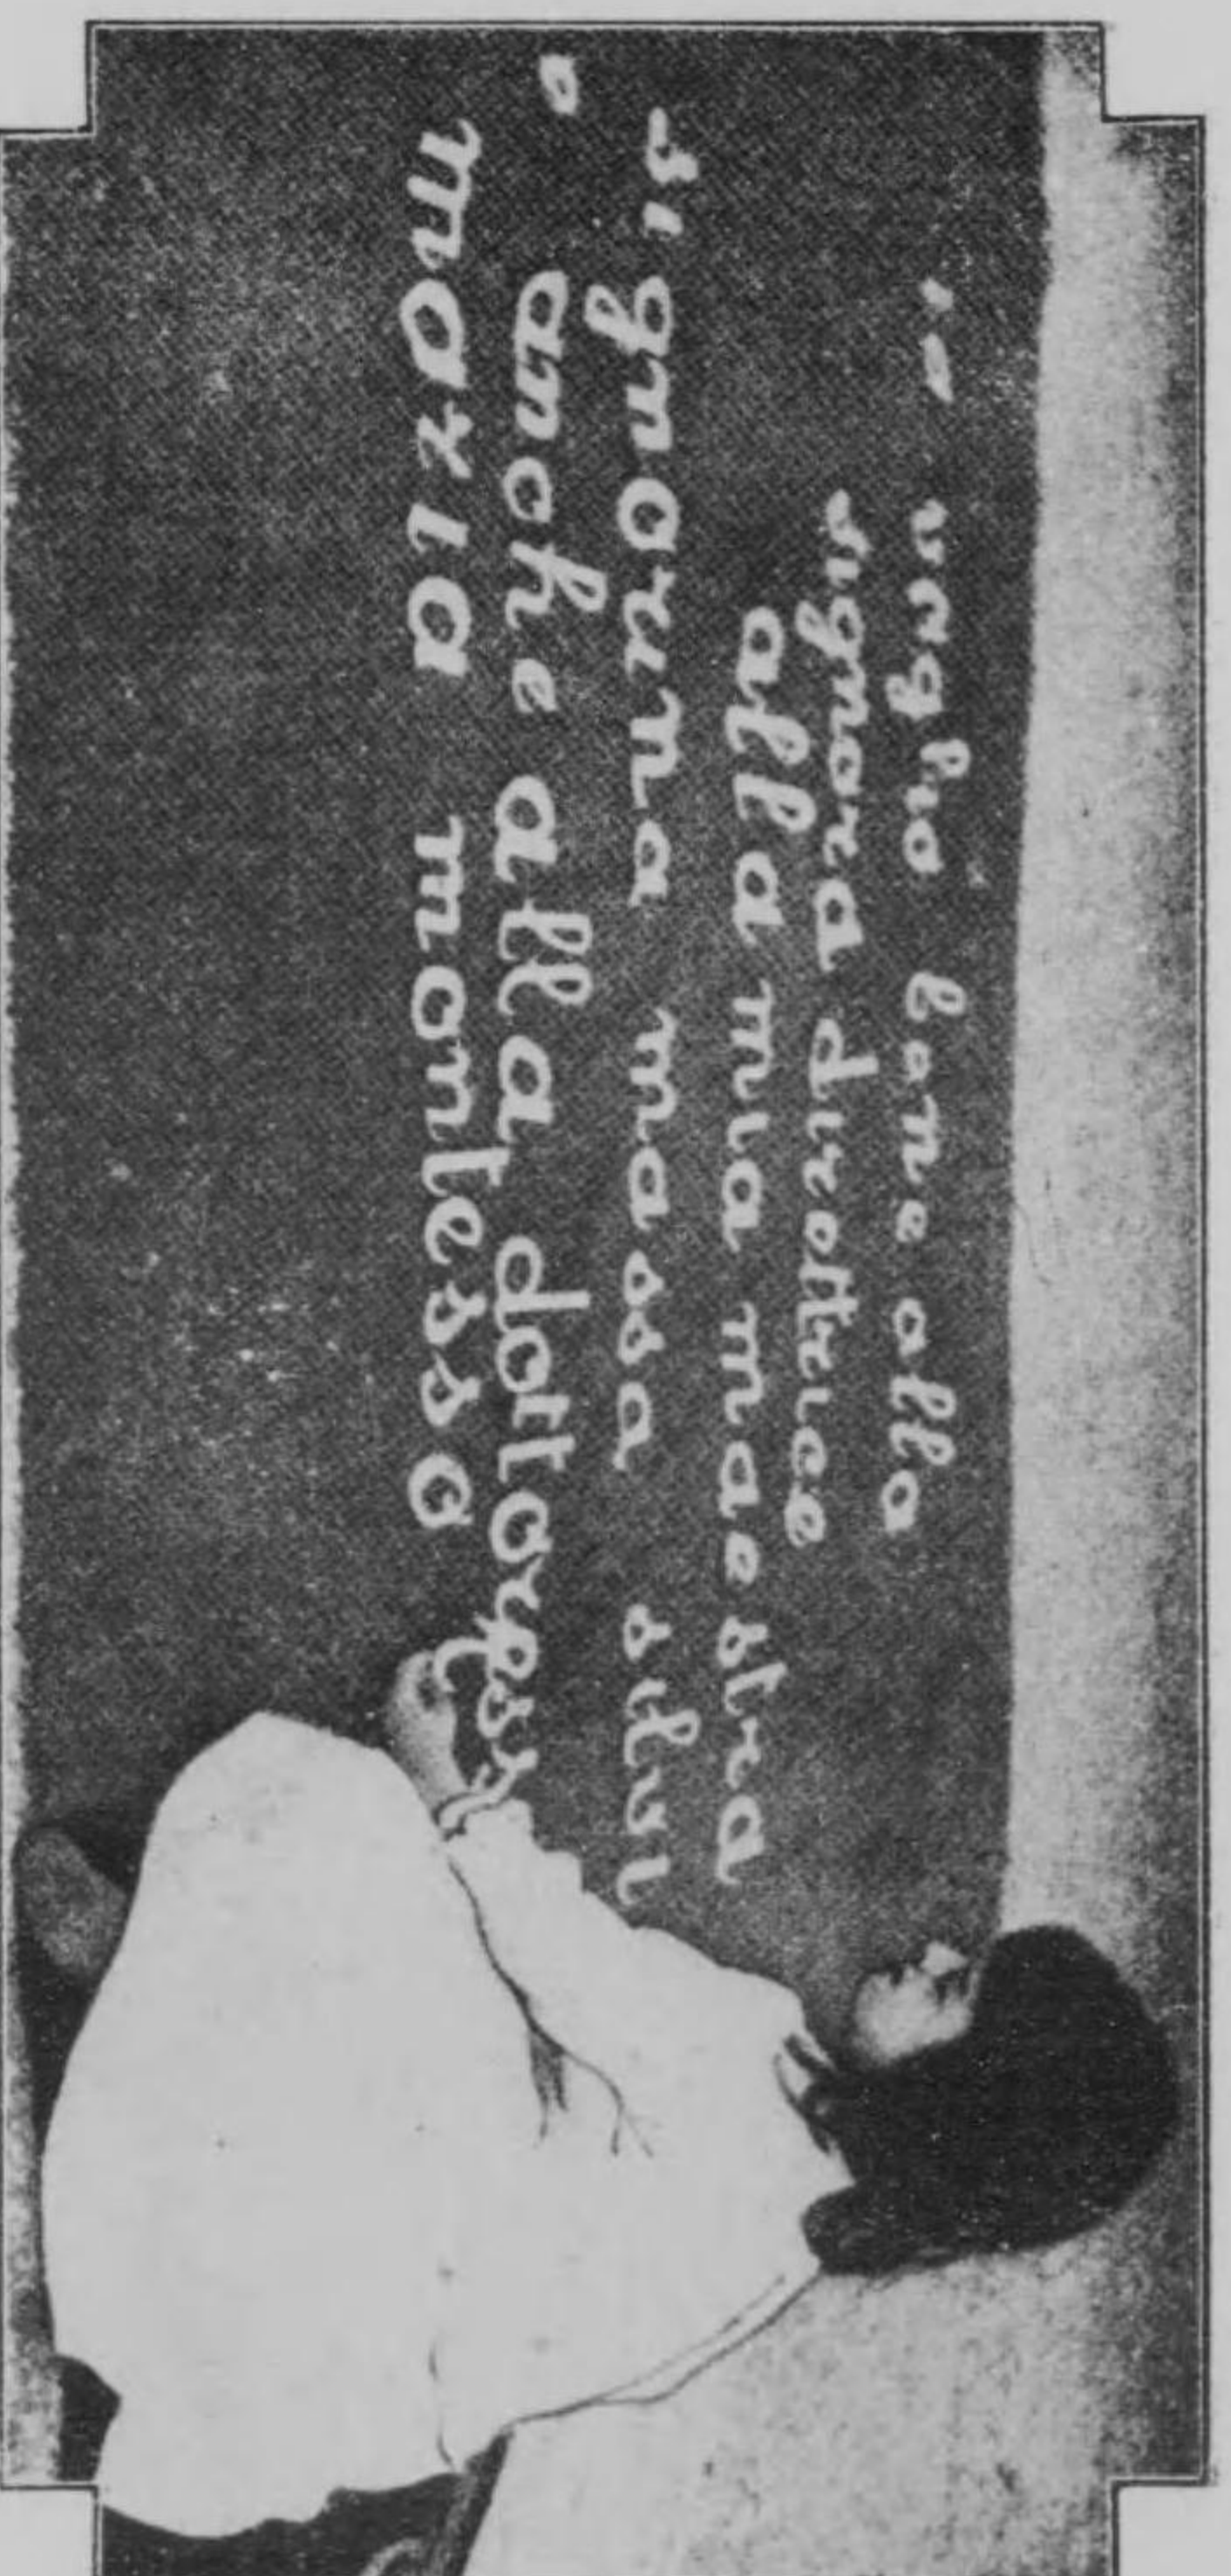 io voglio bene alla
signora direttrice
alla mia maestra
signorina masa silvi
e anche alla dottoress
maria montesso